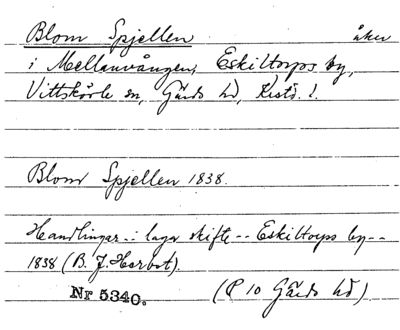 Blom Spjellen åker
i Mellanvången, Eskiltorps by,
Vittskövle sn, Gärds hd, Krist. l.
Blom Spjellen 1838.
Handlingar -- laga skifte -- Eskiltorps by --
1838 (B. J. Herbot).
Nr 5340. (P 10 Gärds hd)